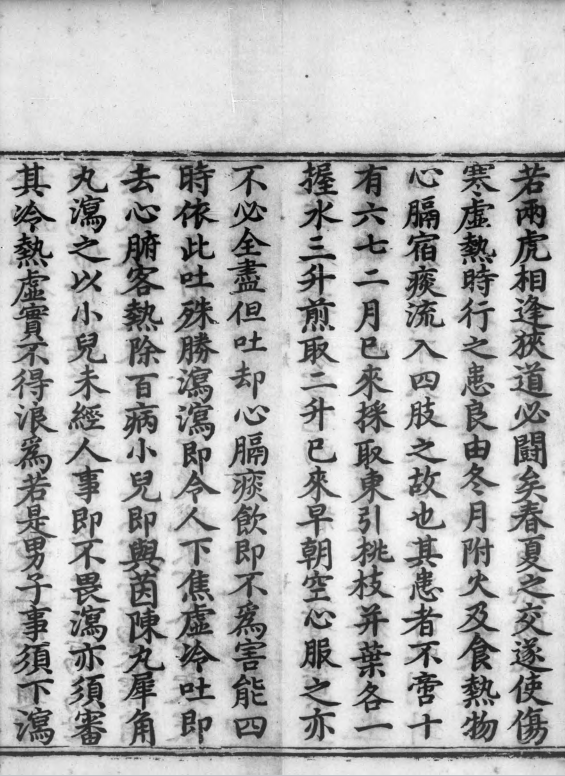 若兩虎相逢狹道必鬪矣春夏之交遂使傷
寒虛熱時行之患良由冬月附火及食熱物
心膈宿痰流入四肢之故也其患者不啻十
有六七二月已來採取東引桃枝并葉各一
握水三升煎取二升已來早朝空心服之亦
不必全盡但吐却心膈痰飲即不爲害能四
時依此吐殊勝瀉瀉即令人下焦虛冷吐即
去心腑客熱除百病小兒即與茵陳丸犀角
丸瀉之以小兒未經人事即不畏瀉亦須審
其冷熱虛實不得浪爲若是男子事須下瀉